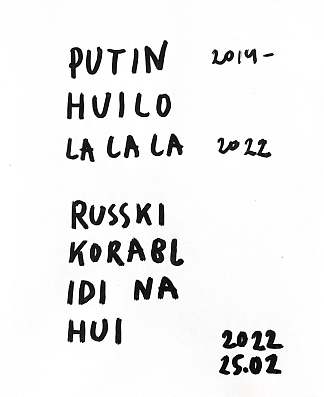 PUTIN 2014-
HUILO
LA LA LA 2022
RUSSKI
KORABL
IDI NA
HUI 2022
25.02